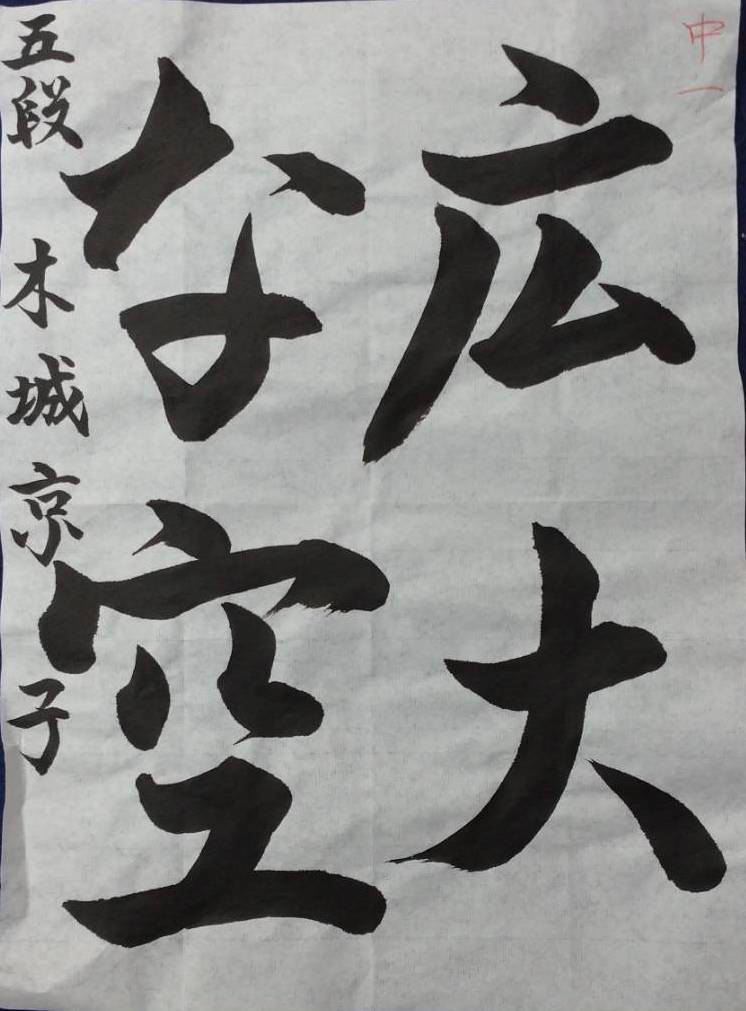 中一
広大
な空
五段 木城京子